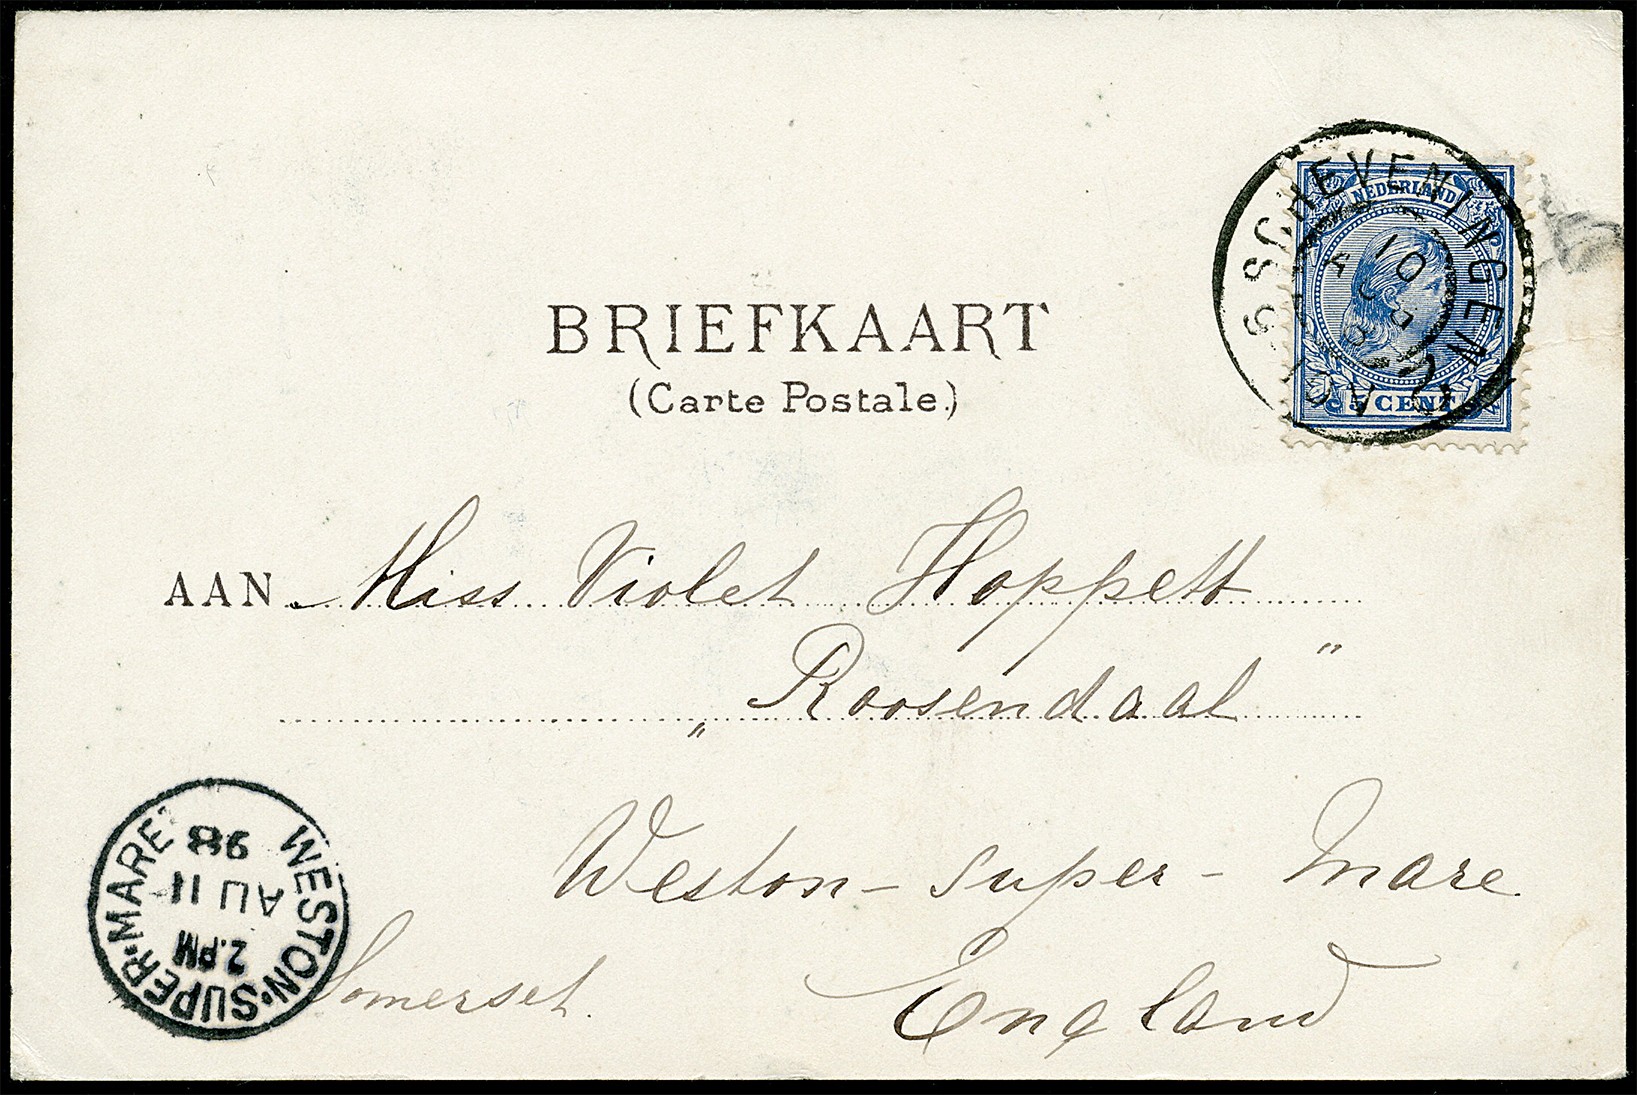 BRIEFKAART
(Carte Postale.)
SCHEVENINGEN
NEDERLAND
5 CENT
AAN Miss Violet Hoppett
„Roosendaal"
Weston-super-Mare
England
Somerset.
WESTON·SUPER·MARE
2.PM
AU 11
98